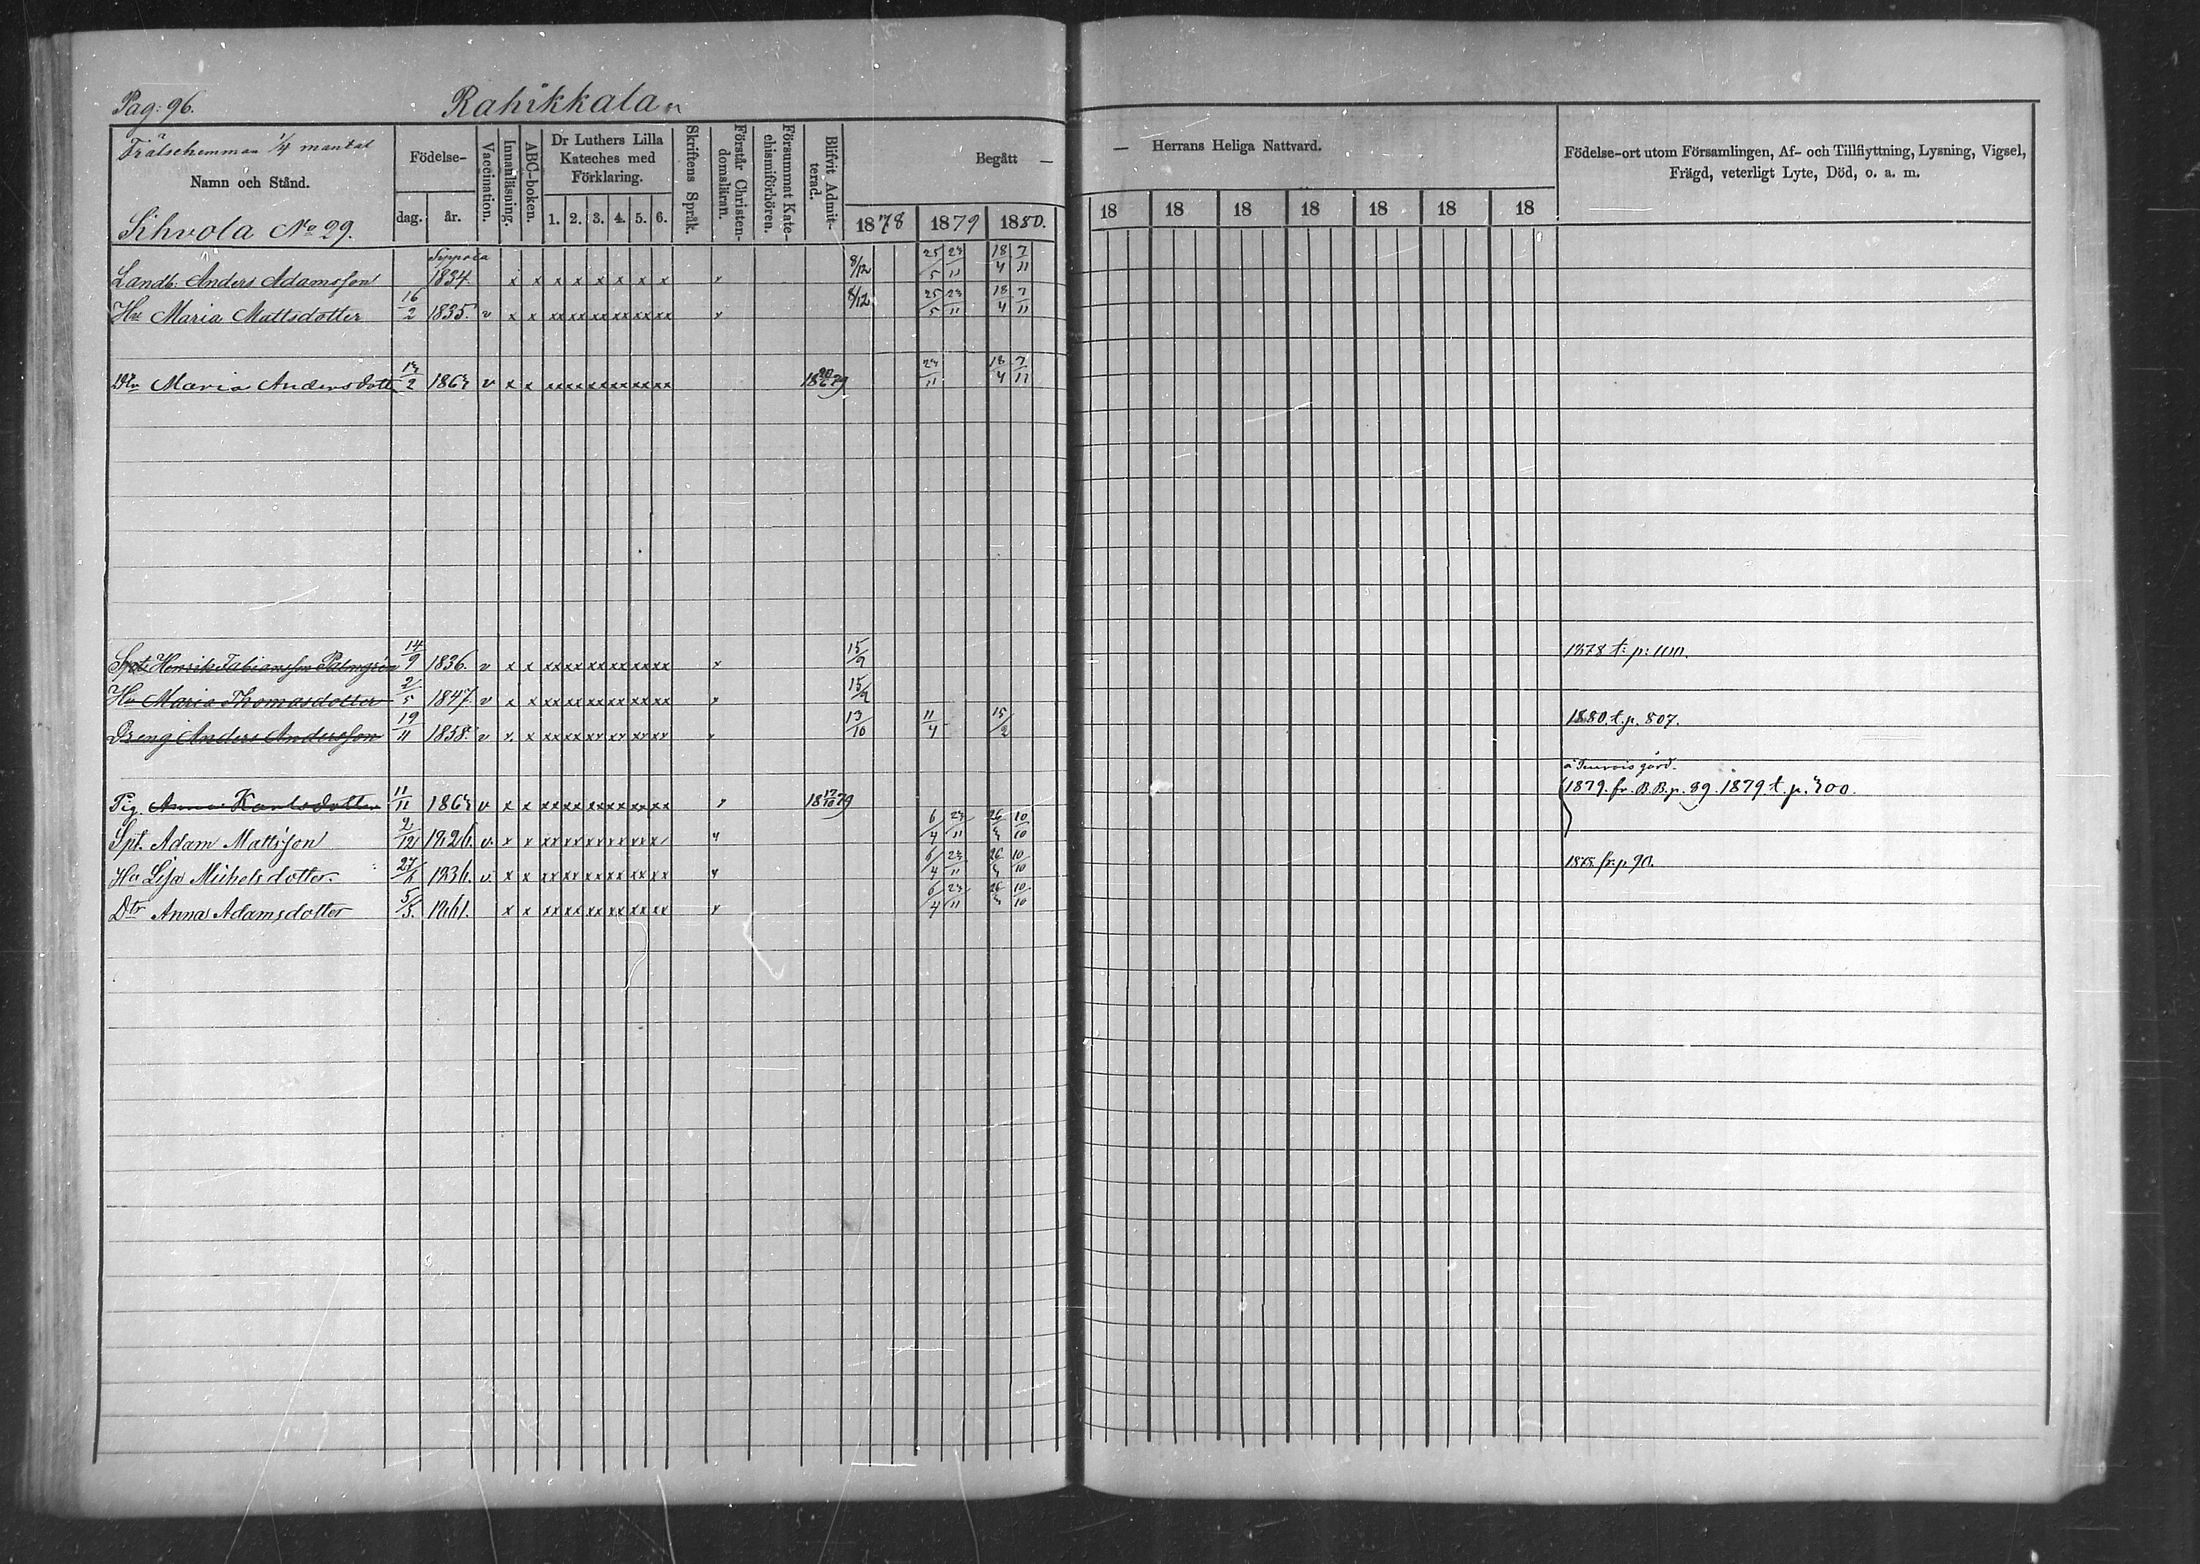 Pag: 96. Rahikkala
Frälsehemman 1/4 mantal
Namn och Stånd.
Sihvola No 29.
Födelse-
dag. år.
Vaccination.
Innanläsning.
ABC-boken.
Dr Luthers Lilla
Kateches med
Förklaring.
1. 2. 3. 4. 5. 6.
Skriftens Språk.
Förstår Christen-
domsläran.
Försummat Kate-
chismiförhören.
Blifvit Admit-
terad.
Begått —
1878 1879 1880.
— Herrans Heliga Nattvard.
18 18 18 18 18 18 18
Födelse-ort utom Församlingen, Af- och Tillflyttning, Lysning, Vigsel,
Frägd, veterligt Lyte, Död, o. a. m.
Sippola
Landb. Anders Adamsson 1834. x x x x x x x x 8/12 25/5 23/11 18/4 7/11
Hu Maria Mattsdotter 16/2 1835. v x x xx xx xx xx xx xx 8/12 25/5 23/11 18/4 7/11
Dtr Maria Andersdott 13/2 1863 v x x xx xx xx xx xx xx 23/11 18/4 7/11
Spt. Henrik Fabiansson Palmgren 14/9 1836. v x x xx xx xx xx xx xx x 15/9 1878 t: p:
Hu Maria Thomasdotter 2/5 1847. v x x xx xx xx xx xx xx 15/9
Dreng Anders Andersson 19/11 1858. v x x xx xx xx xx xx xx 13/10 11/4 15/2 1880. t. p. 807.
gård.
Pig. Anna Karlsdotter 11/11 1863 v x x xx xx xx xx xx xx 18 17/10 79 1879. fr. B.B.p. 39. 1879 t. p. 300.
Spt. Adam Mattsson 2/12 1826. v. x x xx xx xx xx xx 6/4 23/11 26/3 10/10
Hu Lisa Michelsdotter. 27/6 1836. v. x x xx xx xx xx xx xx 6/4 23/11 26/3 10/10 fr. p 90.
Dtr Anna Adamsdotter 5/5. 1861. x x xx xx xx xx xx xx x 6/4 23/11 26/3 10/10